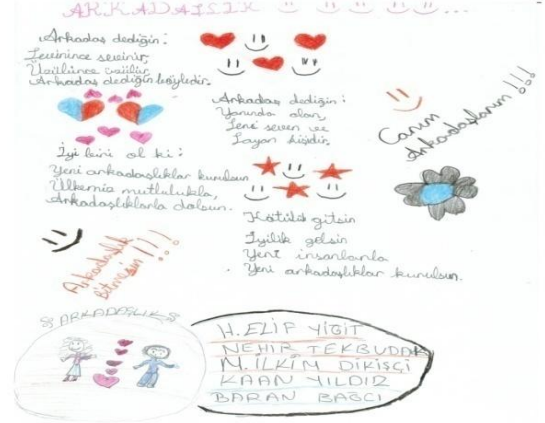 ARKADAŞLIK
Arkadaş dediğin:
Sevinince sevinir,
Üzülünce üzülür,
Arkadaş dediğin böyledir.
Arkadaş dediğin:
Yanında olan,
Seni seven ve
Sayan kişidir.
Canım
Arkadaşlarım!!!
İyi biri ol ki:
Yeni arkadaşlıklar kurulsun
Ülkemiz mutlulukla,
Arkadaşlıklarla dolsun.
Kötülük gitsin
İyilik gelsin
Yeni insanlarla
Yeni arkadaşlıklar kurulsun.
Arkadaşlık
Bitmesin!!!
ARKADAŞLIK
H.ELİF YİĞİT
NEHİR TEKBUDAK
M.İLKİM DİKİŞÇİ
KAAN YILDIZ
BARAN BAĞCI